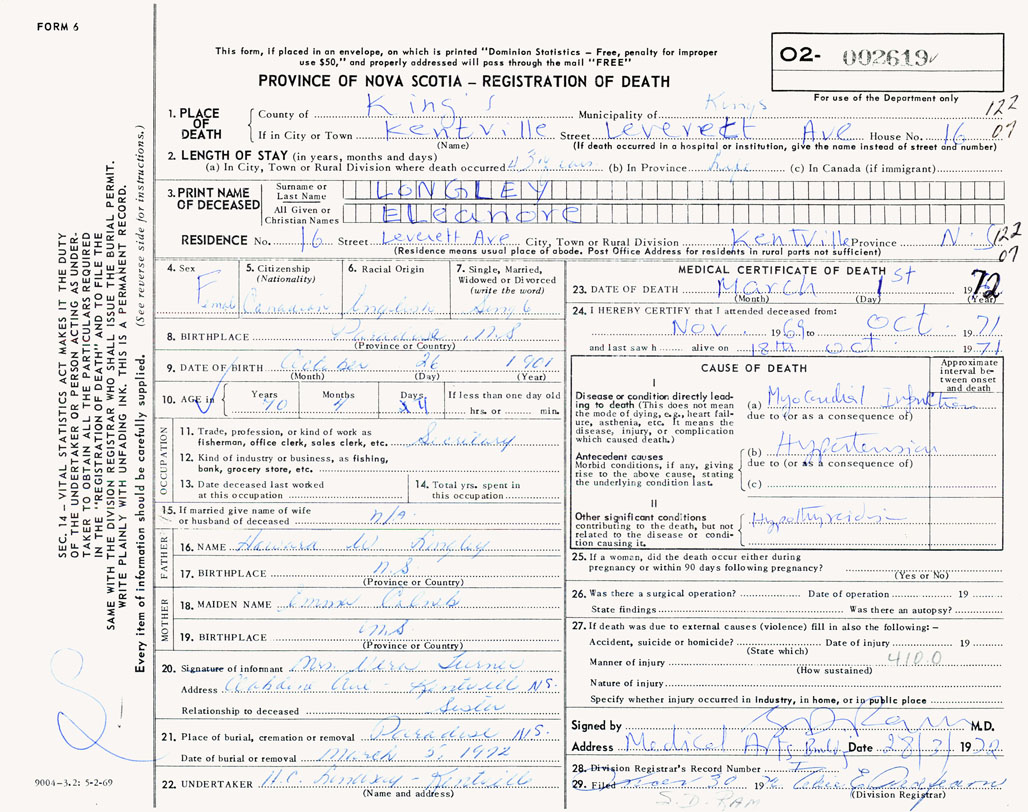 FORM 6
This form, if placed in an envelope, on which is printed "Dominion Statistics – Free, penalty for improper
use $50," and properly addressed will pass through the mail "FREE"
O2- 002619
PROVINCE OF NOVA SCOTIA – REGISTRATION OF DEATH
For use of the Department only
1. PLACE OF DEATH
County of King's Municipality of Kings 122
If in City or Town Kentville Street Leverett Ave House No. 16 07
(Name) (If death occurred in a hospital or institution, give the name instead of street and number)
2. LENGTH OF STAY (in years, months and days)
(a) In City, Town or Rural Division where death occurred 43 years (b) In Province Life (c) In Canada (if immigrant)
3. PRINT NAME OF DECEASED
Surname or Last Name LONGLEY
All Given or Christian Names Eleanore
RESIDENCE No. 16 Street Leverett Ave City, Town or Rural Division Kentville Province N.S 122 07
(Residence means usual place of abode. Post Office Address for residents in rural parts not sufficient)
4. Sex Female
5. Citizenship (Nationality) Canadian
6. Racial Origin English
7. Single, Married, Widowed or Divorced (write the word) Single
8. BIRTHPLACE Paradise N.S
(Province or Country)
9. DATE OF BIRTH October 26 1901
(Month) (Day) (Year)
10. AGE in Years 70 Months 4 Days If less than one day old hrs. or min.
OCCUPATION
11. Trade, profession, or kind of work as fisherman, office clerk, sales clerk, etc. Secretary
12. Kind of industry or business, as fishing, bank, grocery store, etc.
13. Date deceased last worked at this occupation
14. Total yrs. spent in this occupation
15. If married give name of wife or husband of deceased n/a
FATHER
16. NAME Howard W Longley
17. BIRTHPLACE N.S
(Province or Country)
MOTHER
18. MAIDEN NAME Emma
19. BIRTHPLACE N.S.
(Province or Country)
20. Signature of informant Mrs. Vera Turner
Address Ave - Kentville N.S.
Relationship to deceased Sister
21. Place of burial, cremation or removal Paradise N.S.
Date of burial or removal March 5, 1972
22. UNDERTAKER H.C. Lindsay - Kentville
(Name and address)
MEDICAL CERTIFICATE OF DEATH
23. DATE OF DEATH March 1st 1972
(Month) (Day) (Year)
24. I HEREBY CERTIFY that I attended deceased from:
Nov. 1969 to Oct. 1971
and last saw h alive on 18th Oct. 1971
CAUSE OF DEATH
Approximate interval between onset and death
I
Disease or condition directly leading to death (This does not mean the mode of dying, e.g., heart failure, asthenia, etc. It means the disease, injury, or complication which caused death.)
(a) Myocardial Infarction
due to (or as a consequence of)
Antecedent causes
Morbid conditions, if any, giving rise to the above cause, stating the underlying condition last.
(b) Hypertension
due to (or as a consequence of)
(c)
II
Other significant conditions contributing to the death, but not related to the disease or condition causing it. Hypothyroidism
25. If a woman, did the death occur either during
pregnancy or within 90 days following pregnancy?
(Yes or No)
26. Was there a surgical operation? Date of operation 19
State findings Was there an autopsy?
27. If death was due to external causes (violence) fill in also the following: –
Accident, suicide or homicide? Date of injury 19
(State which)
Manner of injury 410.0
(How sustained)
Nature of injury
Specify whether injury occurred in industry, in home, or in public place
Signed by M.D.
Address Medical Arts Building Date 28/3/ 19
28. Division Registrar's Record Number
29. Filed 30 19
(Division Registrar)
S.D. RAM
SEC. 14 – VITAL STATISTICS ACT MAKES IT THE DUTY
OF THE UNDERTAKER OR PERSON ACTING AS UNDERTAKER TO OBTAIN ALL THE PARTICULARS REQUIRED
IN THE "REGISTRATION OF DEATH" AND TO FILE THE
SAME WITH THE DIVISION REGISTRAR WHO SHALL ISSUE THE BURIAL PERMIT.
WRITE PLAINLY WITH UNFADING INK. THIS IS A PERMANENT RECORD.
Every item of information should be carefully supplied. (See reverse side for instructions.)
9004-3.2: 5-2-69